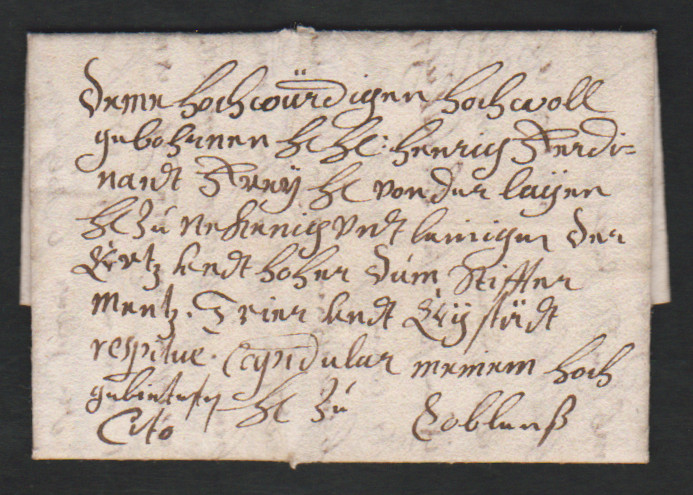 Deme hochwürdigen hochwoll
gebohrnen H H: Henrich Ferdi=
nandt Frey H von der layen
H zu Nickenich undt leiningen der
Ertz undt hoher Dum Stiffter
Mentz. Trier undt Eystädt
respitue. Capitular meinem hoch
gebietesten H zu Coblentz
Cito